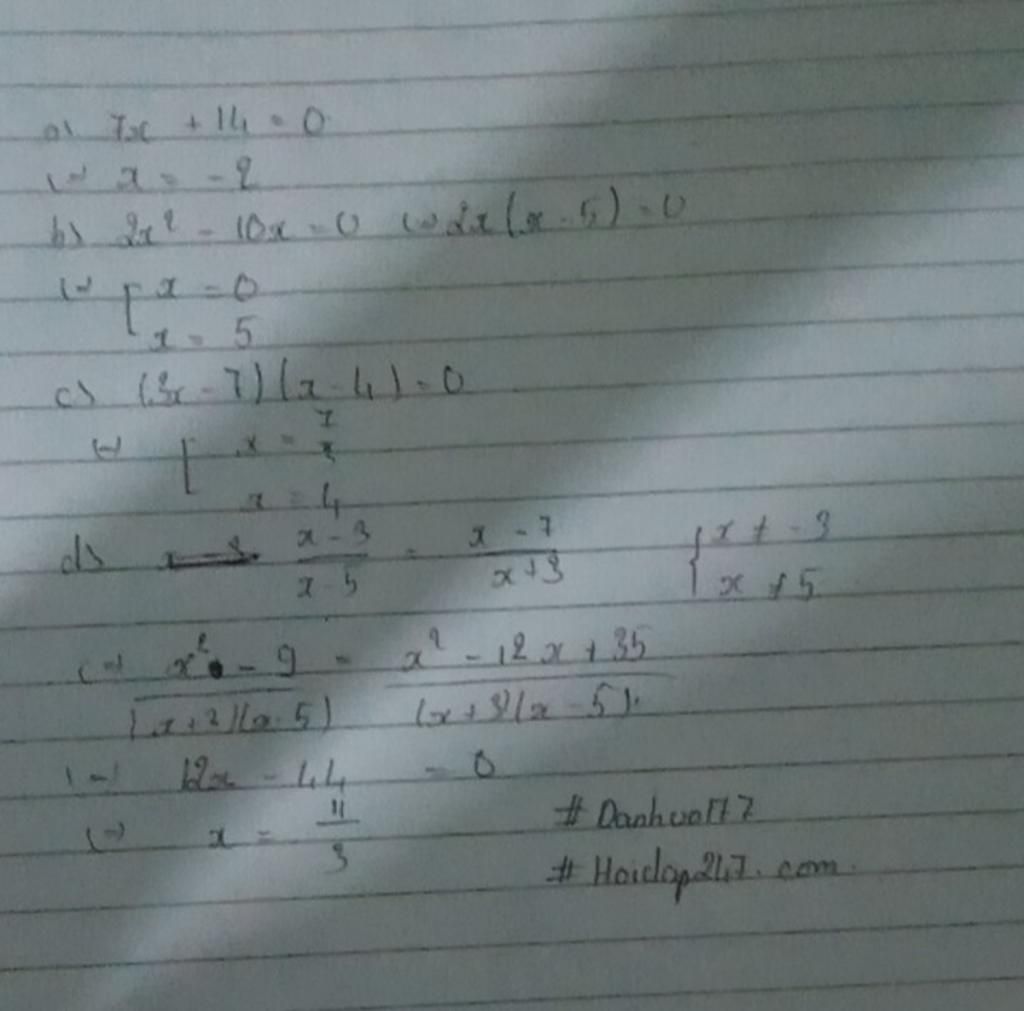 a) 7x + 14 = 0
(=) x = -2
b) 2x² - 10x = 0 (=) 2x(x - 5) = 0
(=) [ x = 0
x = 5
c) (3x - 7)(x - 4) = 0
(=) [ x = 7/3
x = 4
d) x-3/x-5 = x-7/x+3 { x ≠ -3
x ≠ 5
(=) x² - 9/(x+3)(x-5) = x² - 12x + 35/(x+3)(x-5)
(=) 12x - 44 = 0
(=) x = 11/3
# Hoidap247.com